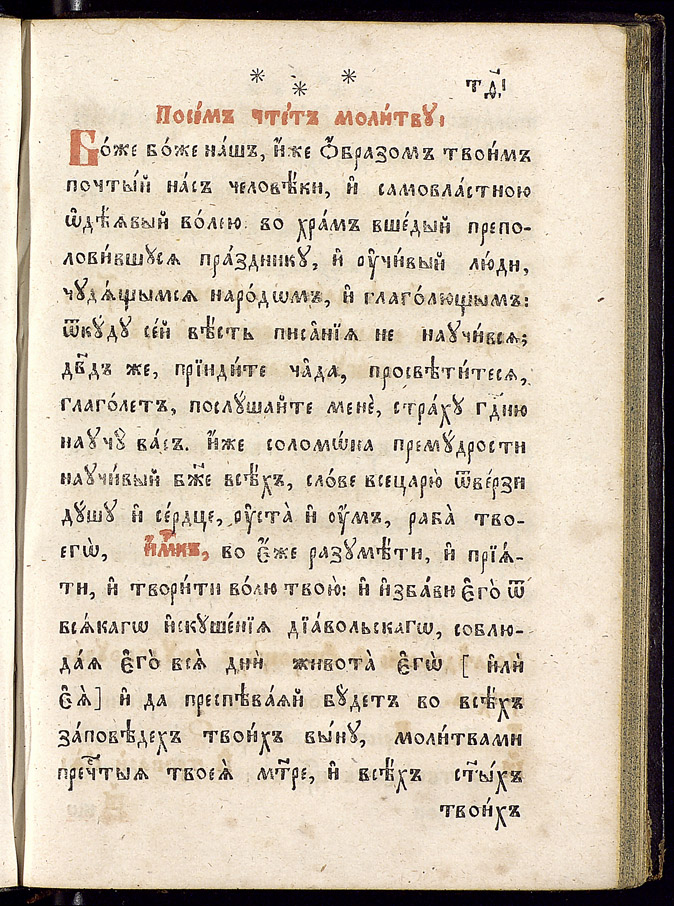 * * *
тд҃і
Посе́мъ чте́тъ моли́тву,
Бо́же бо́же на́шъ, и҆́же ѻ҆́бразомъ твои́мъ
почты́й на́съ человѣ́ки, и҆ самовла́стною
ѡ҆дѣ́ѧвый во́лею. во хра́мъ вше́дый препо-
лови́вшусѧ пра́зднику, и҆ ᲂу҆чи́вый лю́ди,
чудѧ́щымсѧ наро́дѡмъ, и҆ глаго́лющымъ:
ѿку́ду се́й вѣ́сть писа̑нїѧ не научи́всѧ;
дв҃дъ же, прїиди́те ча̑да, просвѣти́тесѧ,
глаго́летъ, послу́шайте менѐ, стра́ху гдⷭ҇ню
научу̀ ва́съ. и҆́же соломѡ́на прему́дрости
научи́вый бж҃е всѣ́хъ, сло́ве всецарю̀ ѿве́рзи
ду́шу и҆ се́рдце, ᲂу҆ста̀ и҆ ᲂу҆́мъ, раба̀ тво-
егѡ̀, и҆́мⷬ҇къ, во є҆́же разумѣ́ти, и҆ прїѧ́-
ти, и҆ твори́ти во́лю твою̀: и҆ и҆зба́ви є҆го̀ ѿ
всѧ́кагѡ и҆скуше́нїѧ дїа́вольскагѡ, соблю-
да́ѧ є҆го̀ всѧ̀ дни̑ живота̀ є҆гѡ̀ [ и҆лѝ
є҆ѧ̀] и҆ да преспѣва́ѧй бу́детъ во всѣ́хъ
за́повѣдехъ твои́хъ вы́ну, моли́твами
пречⷭ҇тыѧ твоеѧ̀ мт҃ре, и҆ всѣ́хъ ст҃ы́хъ
твои́хъ